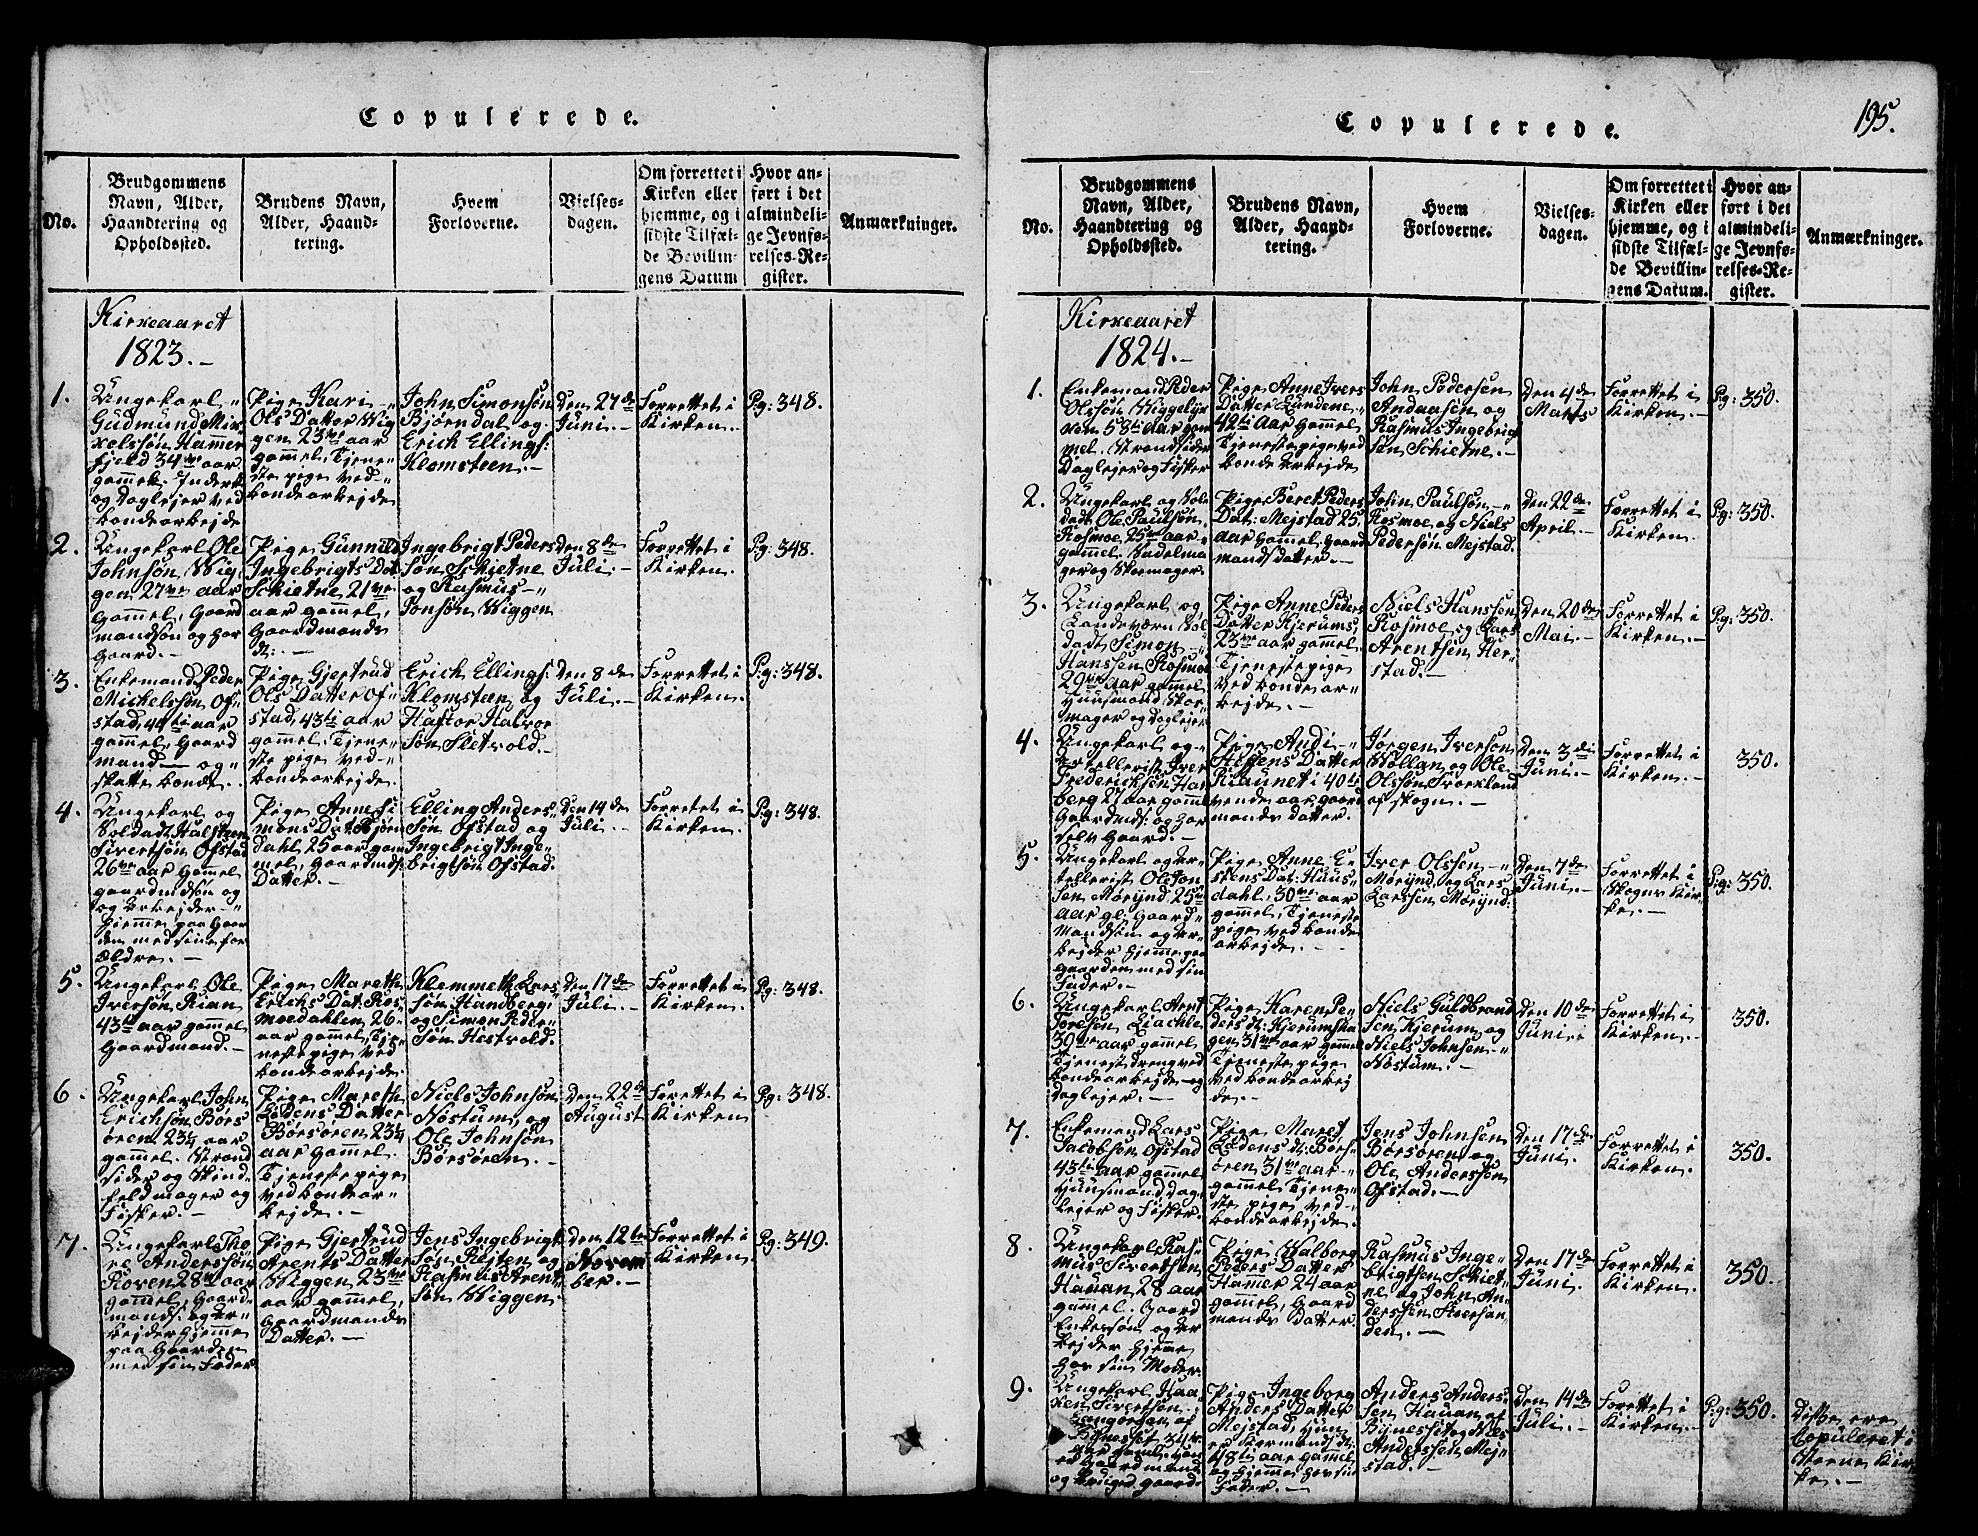 Copulerede.
No.
Brudgommens
Navn, Alder,
Haandtering og
Opholdssted.
Brudens Navn,
Alder, Haand-
tering.
Hvem
Forloverne.
Vielses-
dagen.
Om forrettet i
Kirken eller
hjemme, og i
sidste Tilfæl-
de Bevillin-
gens Datum
Hvor an-
ført i det
almindeli-
ge Jevnfø-
relses-Re-
gister.
Anmærkninger.
Kirkeaaret
1823.-
1.
Ungekarl
Gudmund Mik-
kelssøn Hammer
fjeld 34 aar
gammel. Inderst
og Daglejer ved
bondearbejde
Pige Kari
Ols Datter Wig
gen 23 aar
gammel, Tjene-
ste pige ved
bondearbejde
John Simonsøn
Bjørndal og
Erich Ellings:
Klomsteen.-
Den 27de
Juni.-
Forrettet i
Kirken.-
Pg: 348.
2.
Ungekarl Ole
Johnsøn Wig
gen 27 aar
gammel, Gaard
mandsøn og har
Gaard.-
Pige Gunnild
Ingebrigts Dat
Schietne 21
aar gammel,
Gaardmands
D:-
Ingebrigt Peders
søn Schietne
og Rasmus
Jonsøn Wiggen
Den 8de
Juli.-
Forrettet i
Kirken.
Pg: 348.
3.
Enkemand Peder
Mickelssøn Of-
stad, aar
gammel, Gaard
mand og
skatte bonde.
Pige Gjertrud
Ols Datter Of-
stad, 43 aar
gammel. Tjene-
ste pige ved
bondearbejde.
Erich Ellings:
Klomsteen og
Haftor Halvor
søn Sletvold.-
Den 8de
Juli.-
Forrettet i
Kirken.
Pg: 348.
4.
Ungekarl og
Soldadt Halsteen
Sivertsøn Ofstad
26 aar gammel
gaardmdsøn og
og Arbejder
hjemme paa Gaar
den med sine for
ældre.-
Pige Anne Si
mons Dat: Bjørn
dahl 25 aar gam
mel, Gaardmds:
Datter.-
Elling Anders
søn Ofstad og
Ingebrigt Inge-
brigtsøn Ofstad.
Den 14de
Juli.-
Forrettet i
Kirken.
Pg: 348.
5.
Ungekarl Ole
Iversøn Rian
43 aar gammel
Gaardmand.-
Pige Mareth
Erichs Dat: Ros
moedahlen 26
aar gammel Tje
neste pige ved
bondearbejde.
Klemmeth Lars
søn Handberg
og Simon Peder
søn Hestvold.
Den 17de
Juli.-
Forrettet i
Kirken.-
Pg: 348.
6.
Ungekarl John
Erichsøn Børs
øren 23¼ aar
gammel. Strand
sider og Skind
feldmager og
Fisker.-
Pige Mareth
Datter
Børsøren 23¼
aar gammel.
Tjeneste pige
ved bondear-
bejde.-
Niels Johnsøn
Nøstum, og
Ole Johnsøn
Børsøren.-
Den 22de
August
Forrettet i
Kirken
Pg: 348.
7.
Ungekarl Tho
re Anderssøn
28 aar
gammel, Gaard
mands: og Ar-
bejder hjemme
paa Gaarden
med sin Fader
Pige Gjertrud
Arents Datter
Wiggen 23
aar gammel,
Gaardmands
Datter.-
Jens Ingebrigt
søn og
Rasmus Arent
søn Wiggen.
Den 12te
Novem
ber.-
Forrettet i
Kirken
Pg: 349.
Copulerede.
195.
No.
Brudgommens
Navn, Alder,
Haandtering og
Opholdssted.
Brudens Navn,
Alder, Haand-
tering.
Hvem
Forloverne.
Vielses-
dagen.
Om forrettet i
Kirken eller
hjemme, og i
sidste Tilfæl-
de Bevillin-
gens Datum.
Hvor an-
ført i det
almindeli-
ge Jevnfø-
relses-Re-
gister.
Anmærkninger.
Kirkeaaret
1824.-
1.
Enkemand Peder
Olssøn
58 aar gam
mel. Strandsider
Daglejer og Fisker
Pige Anne Ivers
Datter
42 aar gammel
Tjenestepige ved
bonde Arbejde
John Pedersen
Andaasen og
Rasmus Ingebrigt
sen Schietne.-
Den 4de
Marts
Forrettet i
Kirken.-
Pg: 350.
2.
Ungekarl og Sol
dadt Ole Paulsøn
Rosmoe 25 aar
gammel Sadelma
ger og Skoemager.
Pige Beret Peders
Dat: Mejstad 25
aar gammel gaard
mands datter.-
John Paulsøn
Rosmoe og Niels
Pedersøn Mejstad.
Den 22de
April.-
Forrettet i
Kirken.
Pg: 350.
3.
Ungekarl og
Landeværn Sol
dadt Simon
Hanssen Rosmoe
29 aar gammel
Huusmand Skoe-
mager og Daglejer
Pige Anne Peders
Datter Kjerums
23 aar gammel.
Tjenestepige
ved bondear-
bejde.-
Niels Hanssen
Rosmoe og Lars
Arentsen Her-
stad.-
Den 20de
Mai.-
Forrettet i
Kirken.-
Pg: 350.
4.
Ungekarl og
Iver
Frederichsen Han
berg 27 aar gammel
Gaardmds: og har
selv Gaard.-
Pige Andi
Datter
i 40
vende aar, gaard
mands datter.
Jørgen Iversøn
Wollan og Ole
Olssøn
af Skogn.-
Den 3die
Juni.-
Forrettet i
Kirken.-
350.
5.
Ungekarl og Ar-
tellerist Ole Jon
sen 25
aar gl: Gaard-
Mandsøn og Ar-
bejder hjemme paa
Gaarden med sin
Fader.-
Pige Anne E-
Dat: Huus-
dahl, 30 aar
gammel, Tjeneste
pige ved bonde
arbejde.-
Iver Olssen
og Lars
Larssen
Den 7de
Juni.-
Forrettet i
Skogns Kir
ke.-
Pg: 350.
6.
Ungekarl Arnt
39 aar gammel
Tjenestedreng ved
bondearbejde og
Daglejer.-
Pige Karen Pe
ders D: Kjerumsha
gen 31 aar gammel
Tjenestepige
ved bondearbej
de.-
Niels Guldbrand
sen Kjerum, og
Niels Johnsen
Nøstum.-
Den 10de
Juni.-
Forrettet i
Kirken.-
350.
7.
Enkemand Lars
Jacobsen Ofstad
43 aar gammel
Huusmand Dag-
lejer og Fisker.
Pige Maret
D: Børs-
øren 31 aar
gammel Tjene-
ste pige ved
bondearbejde.
Jens Johnsen
Børsøren og
Ole Anderssen
Ofstad.-
Den 17de
Juni.
Forrettet i
Kirken.
350.
8.
Ungekarl Ras-
mus Sivertsen
Hauan 28 aar
gammel. Gaard
Enkesøn og Ar
bejder hjemme
hos sin Moder.
Pige Walborg
Peders Datter
Hammer 24 aar
gammel, Gaard
mands datter.
Rasmus Inge-
brigtsen Schiet-
ne og John An-
derssen
Den 17de
Juni.-
Forrettet i
Kirken.-
350.
9.
Ungekarl Haa
ken Sivertsøn
af
Bynesset 34
aar gammel.
Gaardmand
og Gaard.-
Pige Ingeborg
Anders Datter
Mejstad,
48 aar gammel
og hjemme hos sin
Fader.-
Anders Anders
sen Hauan af
Bynesset og Niels
Anderssen Mej-
stad.-
Den 14de
Juli.-
Forrettet i
Kirken.-
Pg: 350.
Disse ere
Copuleret i
Kir
ke.-